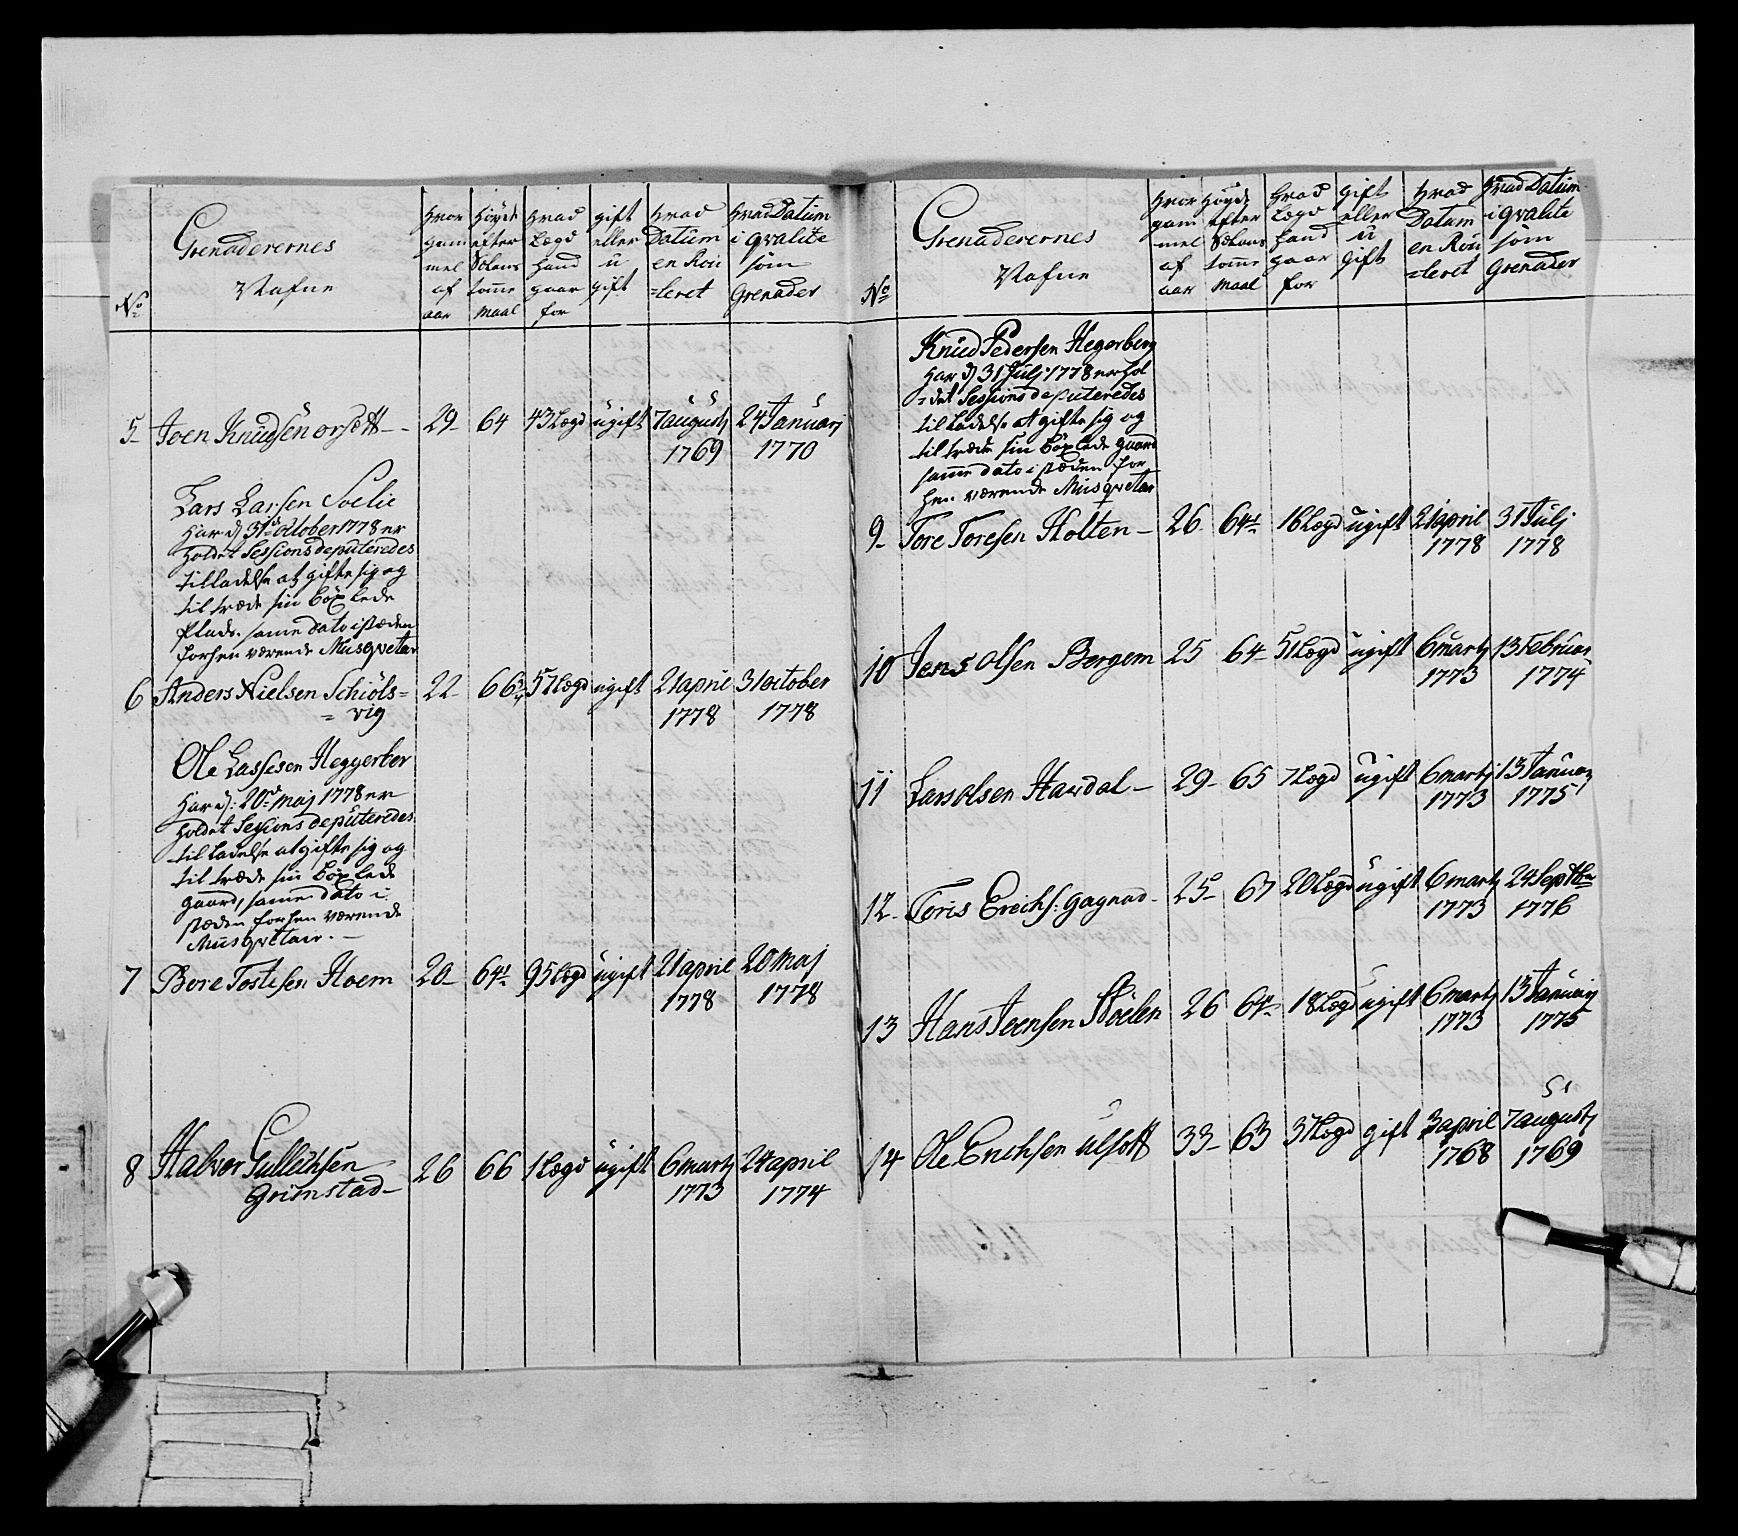 No
Grenaderernes
Nafne
hvor gam mel af aar
höyde efter Siælans tomme Maal
hvad Lægd hand gaar for
gift eller u gift
hvad Datum en Rou =leret
hvad Datum i qvalite som Grenader
5 Joen Knudsen orsett - 29 64 43 Lægd ugift 7 augustj 1769 24 Januarj 1770
Lars Larsen Soelie
har d 31 october 1778 er
holdet Sessions deputeredes
tilladelse at gifte sig og
til træde sin böxlede
Plads. same dato i stæden
forhen værende Musqvetar
6 Anders Nielsen Schiöls=
= vig 22 66 3/4 57 Lægd ugift 21 april 1778 31 october 1778
Ole Lassesen Heggerber
har d: 20de maj 1778 er
holdet Sessions deputeredes
til ladelse at gifte sig og
til træde sin böxlede
gaard, same dato i
stæden forhen værende
Musqvetair. -
7 Bere Tostesen Hoem 20 64 1 95 Lægd ugift 21 april 1778 20 Maj 1778
8 Halvor Gullichsen
Grimstad - 26 66 1 Lægd ugift 6 martj 1773 24 april 1774
No
Grenaderernes
Nafne
hvor gam mel af aar
höyde efter Siælans tomme Maal
hvad Lægd hand gaar for
gift eller u gift
hvad Datum en Rou =leret
hvad Datum i qvalite som Grenader
Knud Pedersen Hegerberg
har d 31 Julj 1778 er hol
=det Sessions deputeredes
til ladelse at gifte sig og
til træde sin böxlede gaard
same dato i stæden for
hen værende Musqvetar
9 Tore Toresen Holten - 26 64 1 16 Lægd ugift 21 april 1778 31 Julj 1778
10 Jens olsen Bergem 25 64 51 Lægd ugift 6 martj 1773 13 Februar 1774
11 Lars olsen Hardal - 29 65 7 Lægd ugift 6 martj 1773 13 Januarj 1775
12 Toris Erichs: Gagnad - 25 67 20 Lægd ugift 6 martj 1773 24 Septbr 1776
13 Hans Joensen Stöelen 26 64 18 Lægd ugift 6 martj 1773 13 Januarj 1775
14 Ole Erichsen ulsett 33 63 37 Lægd gift 3 april 1768 7 augustj 1769